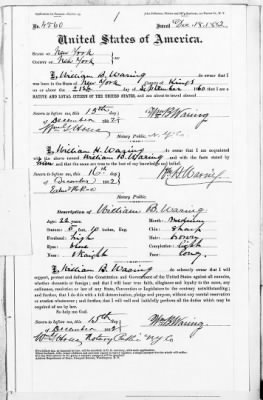 No. 4560
Issued Dec. 18, 1882
United States of America.
STATE OF New York
COUNTY OF New York
I, William B. Waring, do swear that I
was born in the State of New York County of Kings
on or about the 21st day of September 1860 that I am a
NATIVE AND LOYAL CITIZEN OF THE UNITED STATES, and am about to travel abroad.
Sworn to before me, this 15th day
of December 1882
Wm B Waring
Notary Public N.Y. Co.
I, William H. Waring, do swear that I am acquainted
with the above named William B. Waring, and with the facts stated by
him, and that the same are true to the best of my knowledge and belief.
Sworn to before me, this 16th day
of December 1882
Notary Public.
Description of William B. Waring
Age: 22 years. Mouth: medium
Stature: 5 feet, 10 inches, Eng. Chin: sharp
Forehead: high Hair: brown
Eyes: blue Complexion: light
Nose: straight Face: long.
I, William B. Waring, do solemnly swear that I will
support, protect and defend the Constitution and Government of the United States against all enemies,
whether domestic or foreign; and that I will bear true faith, allegiance and loyalty to the same, any
ordinance, resolution or law of any State, Convention or Legislature to the contrary notwithstanding;
and further, that I do this with a full determination, pledge and purpose, without any mental reservation
or evasion whatsoever; and further, that I will well and faithfully perform all the duties which may be
required of me by law.
So help me God.
Sworn to before me, this 15th day
of December 1882
Wm B Waring
Notary Public NY Co